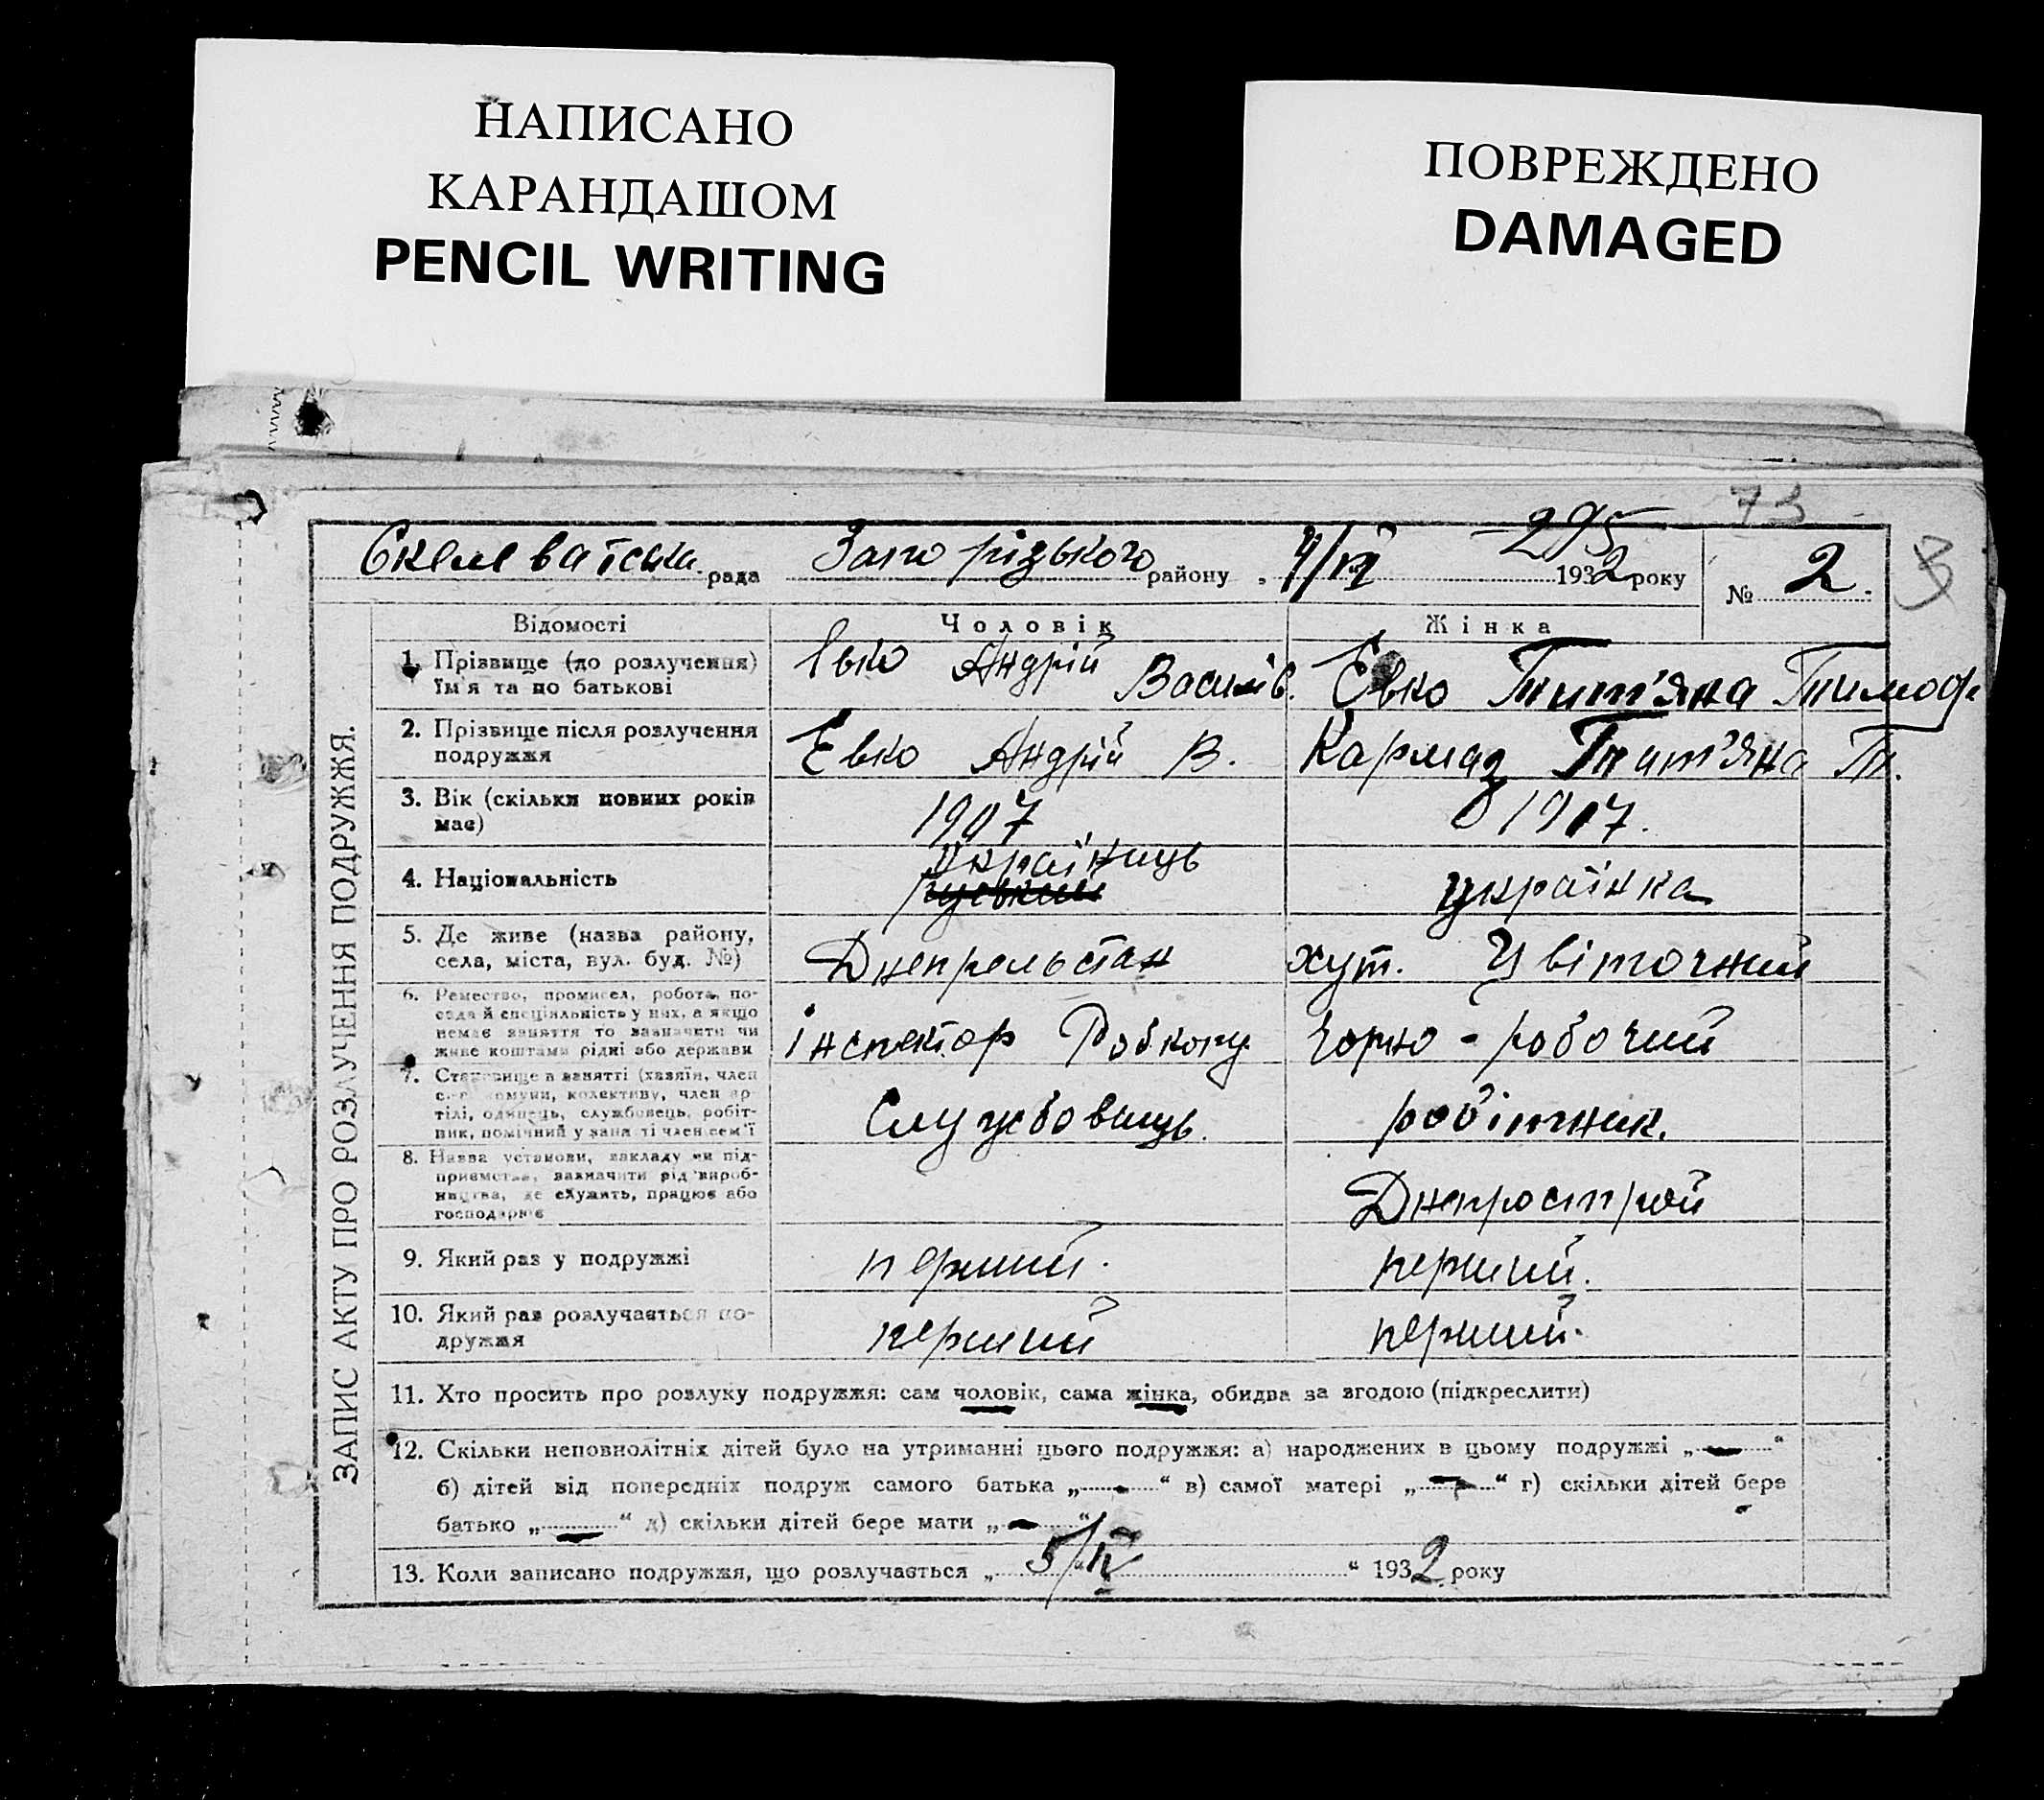 НАПИСАНО
КАРАНДАШОМ
PENCIL WRITING
ПОВРЕЖДЕНО
DAMAGED
73
295
Скелеватська рада Запорізького району 1932 року № 2.
ЗАПИС АКТУ ПРО РОЗЛУЧЕННЯ ПОДРУЖЖЯ.
Відомості Чоловік Жінка
1. Прізвище (до розлучення) Евко Андрій Василів. Евко Тит'яна Тимоф.
їм'я та по батькові
2. Прізвище після розлучення Евко Андрій В. Кармаз Тат'яна Т.
подружжя
3. Вік (скільки повних років 1907 1907.
має)
українець
4. Національність руський українка
5. Де живе (назва району, Днепрельстан хут. Цвіточний
села, міста, вул. буд. №)
6. Ремество, промисел, робота, по-
сада й спеціяльність у них, а якщо
немає заняття то зазначити чи інспектор Робкопу Чорно-робочий
живе коштами рідні або держави
7. Становище в занятті (хазяїн, член
комуни, колективу, член ар-
тілі, одинець, службовець, робіт- Службовець. робітник.
ник, помічний у занятті член сем'ї
8. Назва установи, закладу чи під-
приємства, зазначити рід вироб-
ництва, де служить, працює або Днепрострой
господарює
9. Який раз у подружжі перший. перший.
10. Який раз розлучається по- перший перший.
дружжя
11. Хто просить про розлуку подружжя: сам чоловік, сама жінка, обидва за згодою (підкреслити)
12. Скільки неповнолітніх дітей було на утриманні цього подружжя: а) народжених в цьому подружжі „—“
б) дітей від попередніх подруж самого батька „—“ в) самої матері „—“ г) скільки дітей бере
батько „—“ д) скільки дітей бере мати „—“
13. Коли записано подружжя, що розлучається „5/IV“ 1932 року